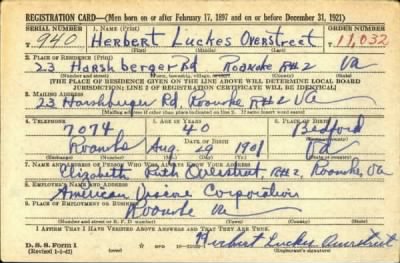 REGISTRATION CARD—(Men born on or after February 17, 1897 and on or before December 31, 1921)
SERIAL NUMBER 1. NAME (Print) ORDER NUMBER
T 940 Herbert Luckes Overstreet T 11,032
(First) (Middle) (Last)
2. PLACE OF RESIDENCE (Print)
23 Harshberger Rd Roanoke RH 2 Va
(Number and street) (Town, township, village, or city) (County) (State)
[THE PLACE OF RESIDENCE GIVEN ON THE LINE ABOVE WILL DETERMINE LOCAL BOARD
JURISDICTION; LINE 2 OF REGISTRATION CERTIFICATE WILL BE IDENTICAL]
3. MAILING ADDRESS
23 Harshberger Rd, Roanoke RH 2 Va
[Mailing address if other than place indicated on line 2. If same insert word same]
4. TELEPHONE 5. AGE IN YEARS 6. PLACE OF BIRTH
7074 40 Bedford
DATE OF BIRTH
Roanoke Aug. 29 1901 Va
(Exchange) (Number) (Mo.) (Day) (Yr.) (State or country)
7. NAME AND ADDRESS OF PERSON WHO WILL ALWAYS KNOW YOUR ADDRESS
Elizabeth Ruth Overstreet, RH 2, Roanoke, Va
8. EMPLOYER'S NAME AND ADDRESS
American Viscose Corporation
9. PLACE OF EMPLOYMENT OR BUSINESS
Roanoke Va
(Number and street or R. F. D. number) (Town) (County) (State)
I AFFIRM THAT I HAVE VERIFIED ABOVE ANSWERS AND THAT THEY ARE TRUE.
D. S. S. Form 1
(Revised 1-1-42) (over) Herbert Luckes Overstreet
(Registrant's signature)